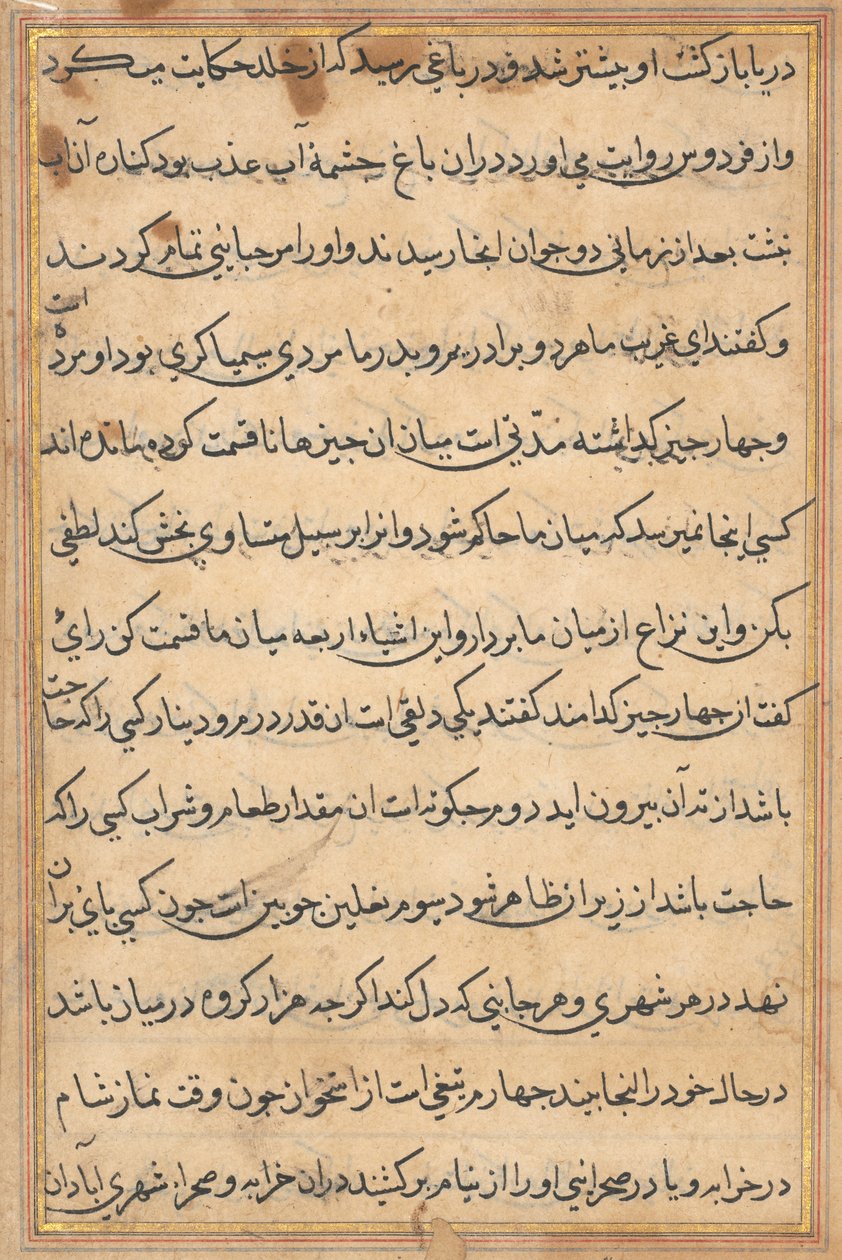 دریا باز کشت او بیشتر شد و در باغي رسید که از خلد حکایت میکرد
و از فردوس روایت مي اورد دران باغ چشمهٔ آب عذب بود کناره آن آب
بنشت بعد از زماني دو جوان انجا رسیدند و او را مرحبایئي تمام کردند
و کفتند اي غریب ما هر دو برادریم و پدر ما مردي سیمیاکري بود او مرده است
و جهار جیز کداشته مدّتي است میان ان جیزها نا قسمت کرده مانده اند
کسي اینجا نمیرسد که میان ما حاکم شود و انرا بر سبیل متساوي بخش کند لطفي
بکن و این نزاع از میان ما بردار و این اشیاء اربعه میان ما قسمت کن رایٔ
کفت از جهار جیز کدامند کفتند یکي دلقي است ان قدر درم و دینار کسي را که حاجت
باشد از ته آن بیرون اید دوم جبکوته است ان مقدار طعام و شراب کسي را که
حاجت باشد از زیر ان ظاهر شود سیوم نعلین جوبین است جون کسي پائ بران
نهد در هر شهري و هر جایئي که دل کند اکر جه هزار کروه در میان باشد
در حال خود را انجا بیند جهارم تیغي است از استخوان جون وقت نماز شام
در خرابه و یا در صحرائي او را از نیام برکشند دران خرابه و صحراء شهري آبادان